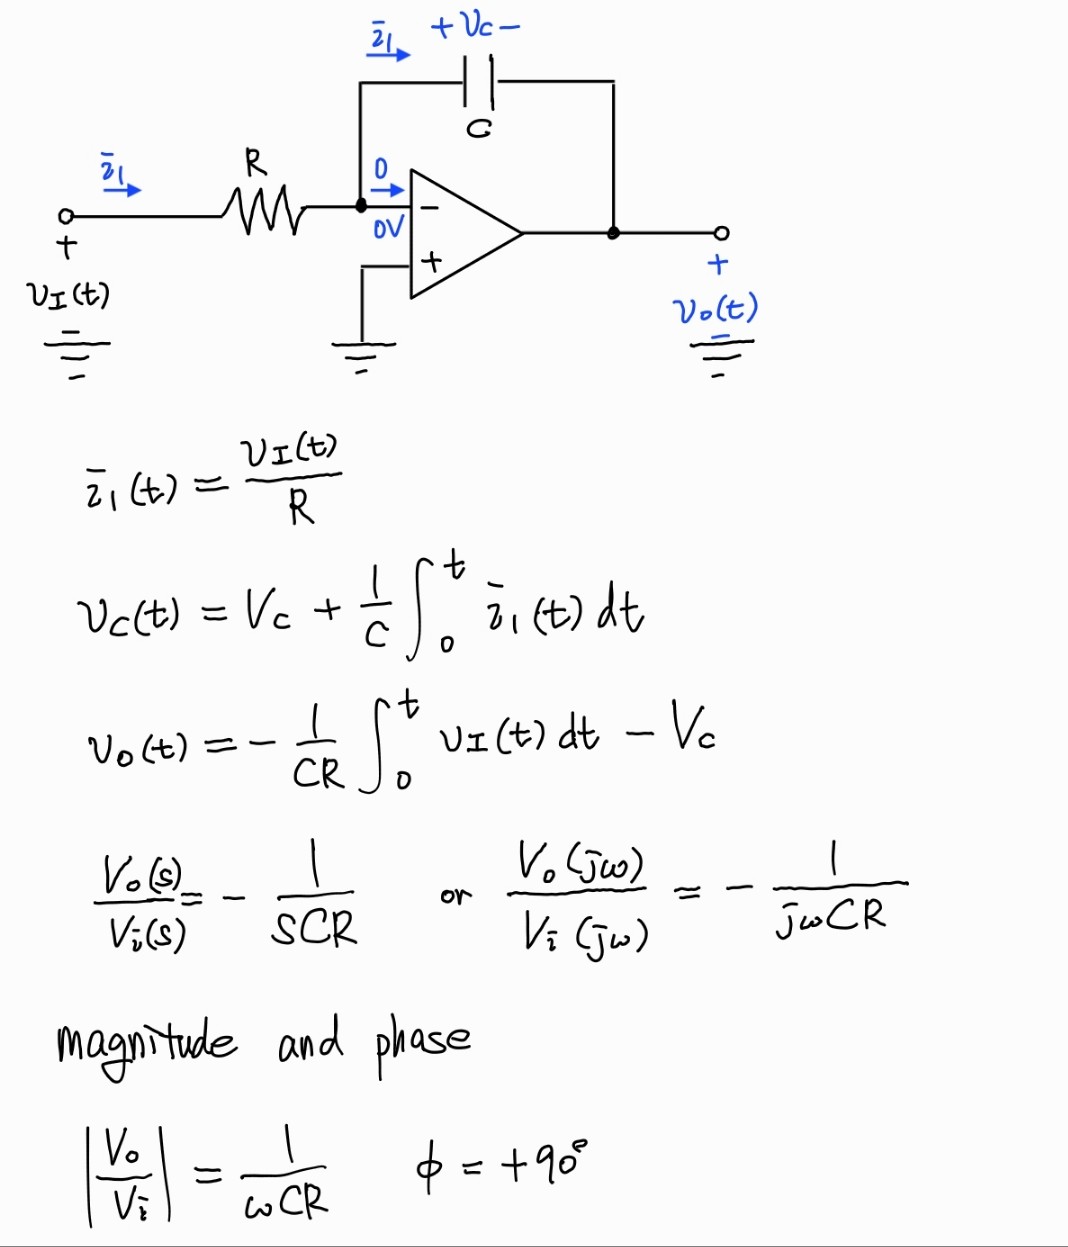 i₁ + Vc −
C
R
i₁ 0
0V −
+ +
+
v_I(t) v_o(t)
− −
i₁(t) = v_I(t)/R
v_C(t) = V_C + 1/C ∫₀ᵗ i₁(t) dt
v_o(t) = − 1/CR ∫₀ᵗ v_I(t) dt − V_C
V_o(s)/V_i(s) = − 1/SCR or V_o(jω)/V_i(jω) = − 1/jωCR
magnitude and phase
|V_o/V_i| = 1/ωCR ϕ = +90°